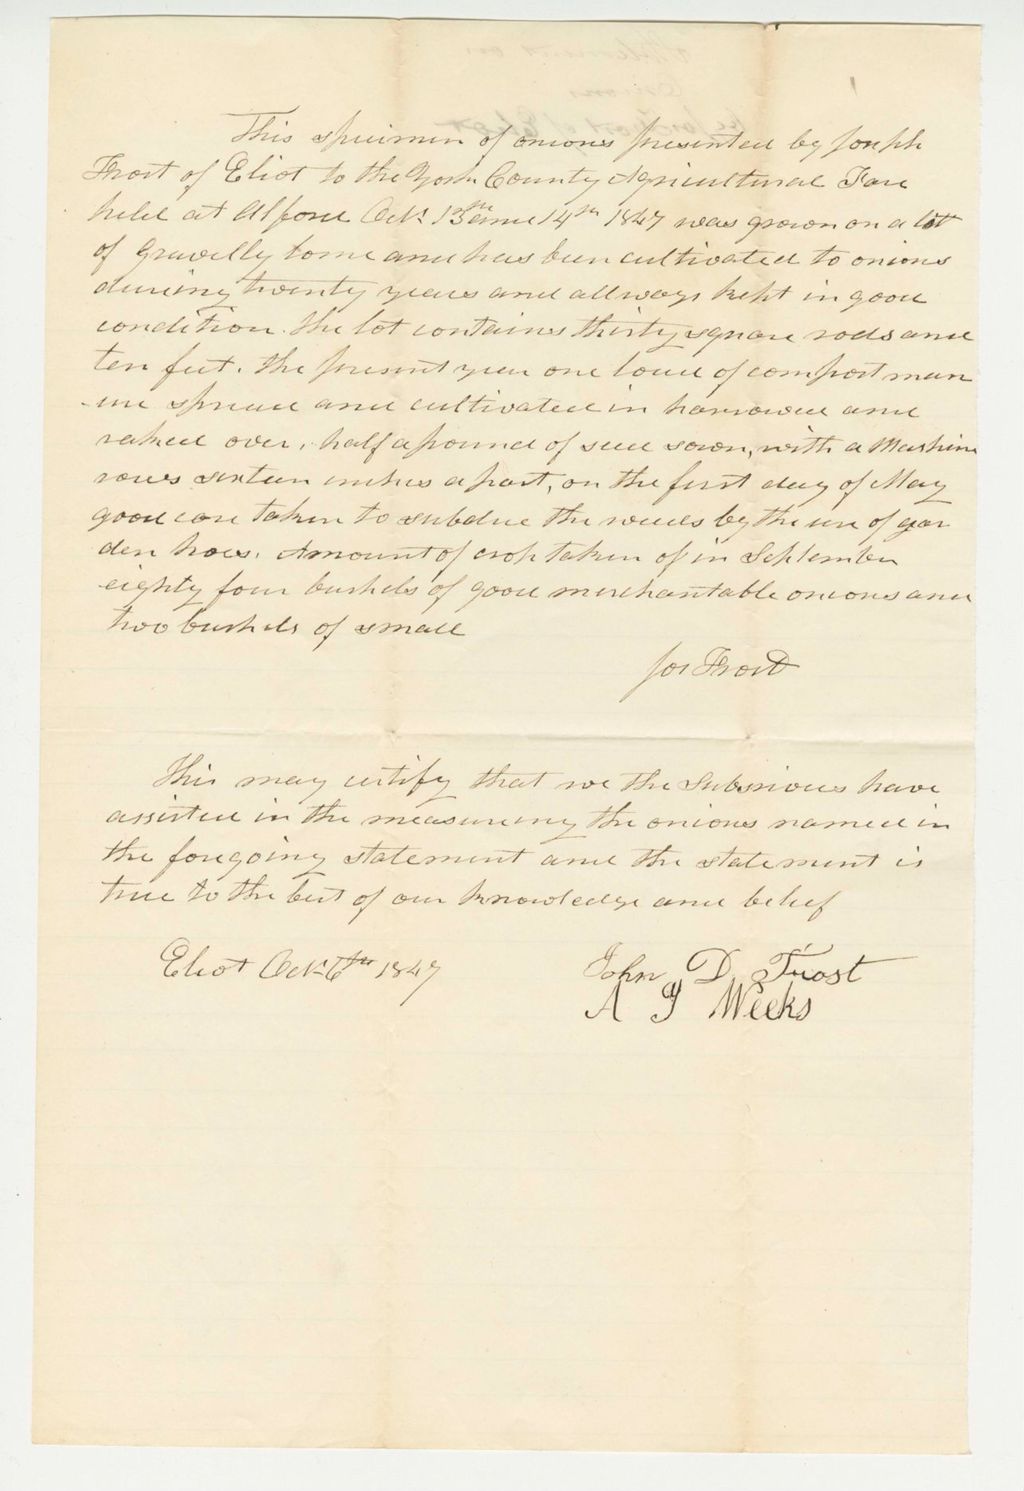 This specimen of onions presented by Joseph
Frost of Eliot to the York County Agricultural Fare
held at Alford Oct 13th and 14th 1847 was grown on a lot
of gravelly lome and has been cultivated to onions
during twenty years and allways kept in good
condition. the lot contains thirty square rods and
ten feet. the present year one load of compost man
ure spread and cultivated in harrowed and
raked over, half a pound of seed sown, with a Mashine
rows sixteen inches apart, on the first day of May
good care taken to subdue the weeds by the use of gar
den hoes. Amount of crop taken of in September
eighty four bushels of good merchantable onions and
two bushels of small
Jos Frost
This may certify that we the Subsrivers have
assisted in the measureing the onions named in
the foregoing statement and the statement is
true to the best of our knowledge and belief
Eliot Oct 6th 1847
John D. Frost
A J Weeks